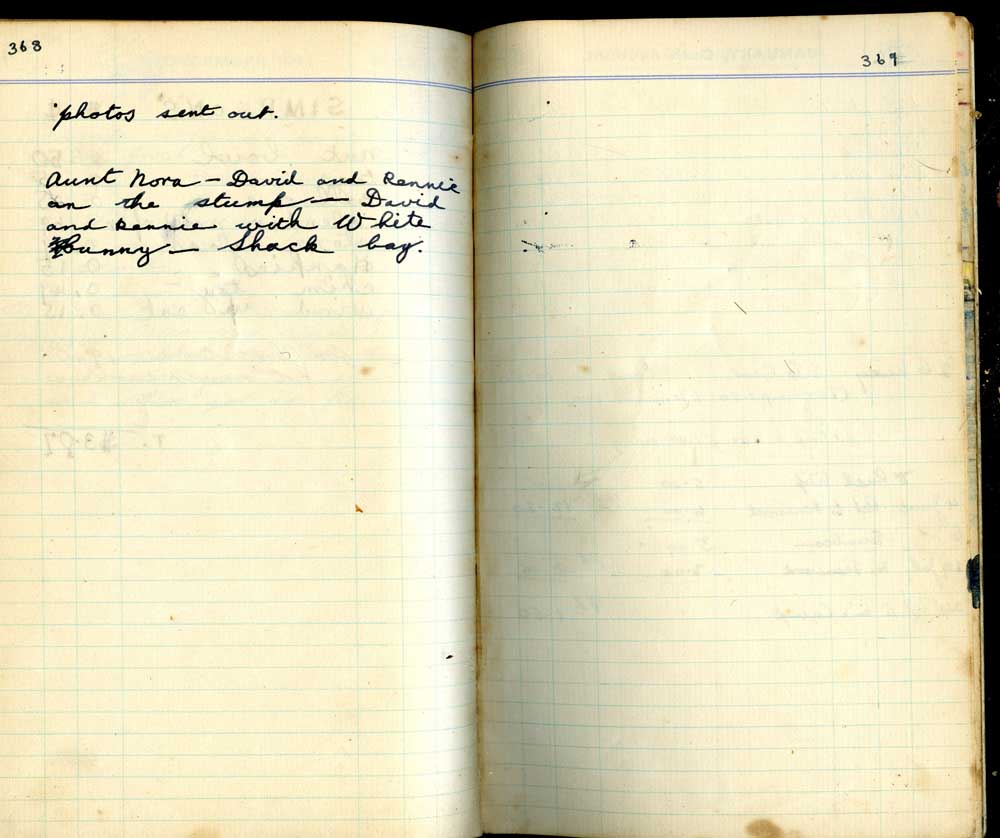 368
369
photos sent out.
Aunt Nora – David and Rennie
on the stump – David
and Rennie with White
Bunny – Shack bay.